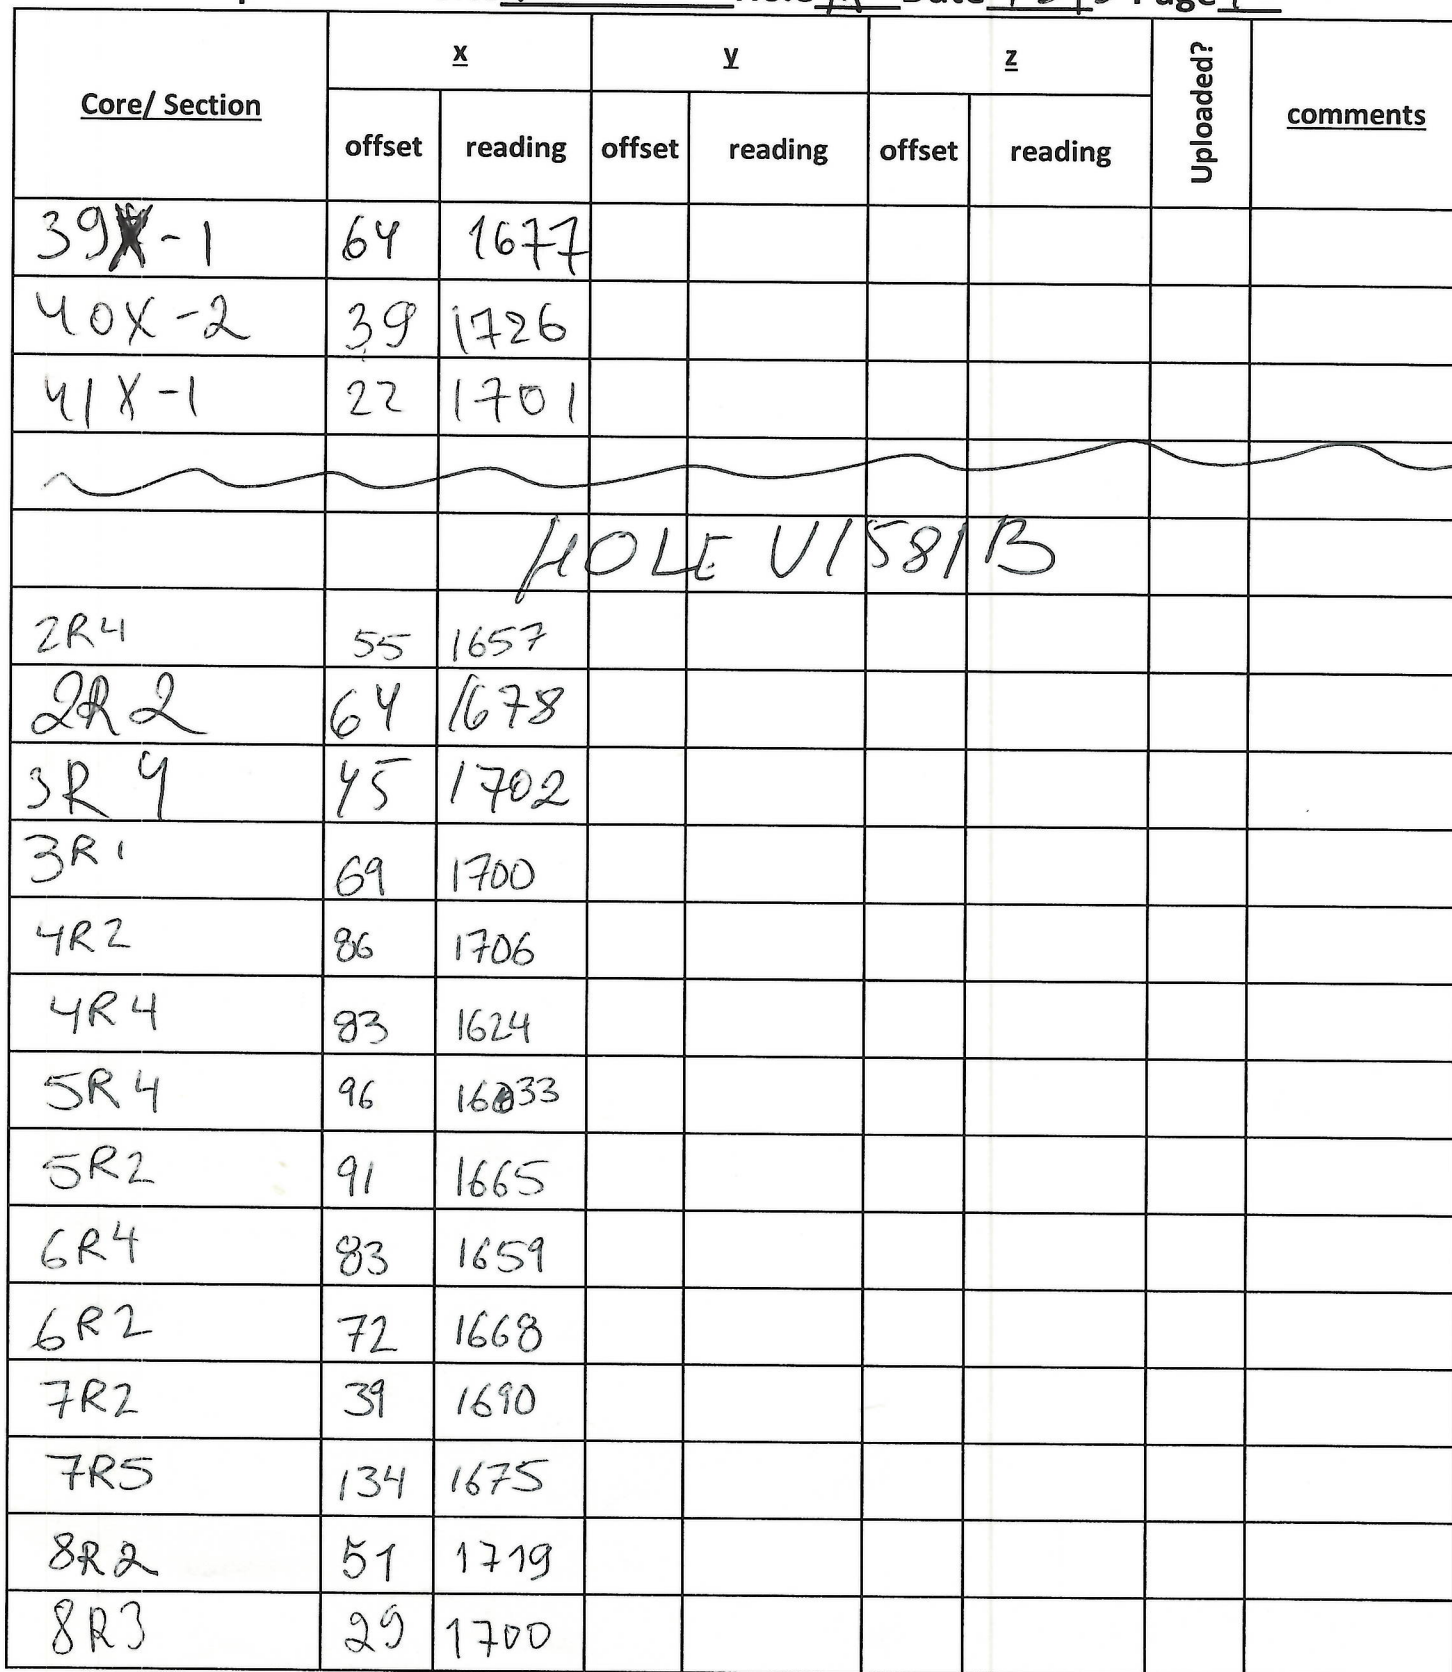 Date Page
x y z
Core/ Section Uploaded? comments
offset reading offset reading offset reading
39X-1 64 1677
40X-2 39 1726
41X-1 22 1701
HOLE U1581B
2R4 55 1657
2R2 64 1678
3R4 45 1702
3R1 69 1700
4R2 86 1706
4R4 83 1624
5R4 96 1633
5R2 91 1665
6R4 83 1659
6R2 72 1668
7R2 39 1690
7R5 134 1675
8R2 51 1719
8R3 29 1700